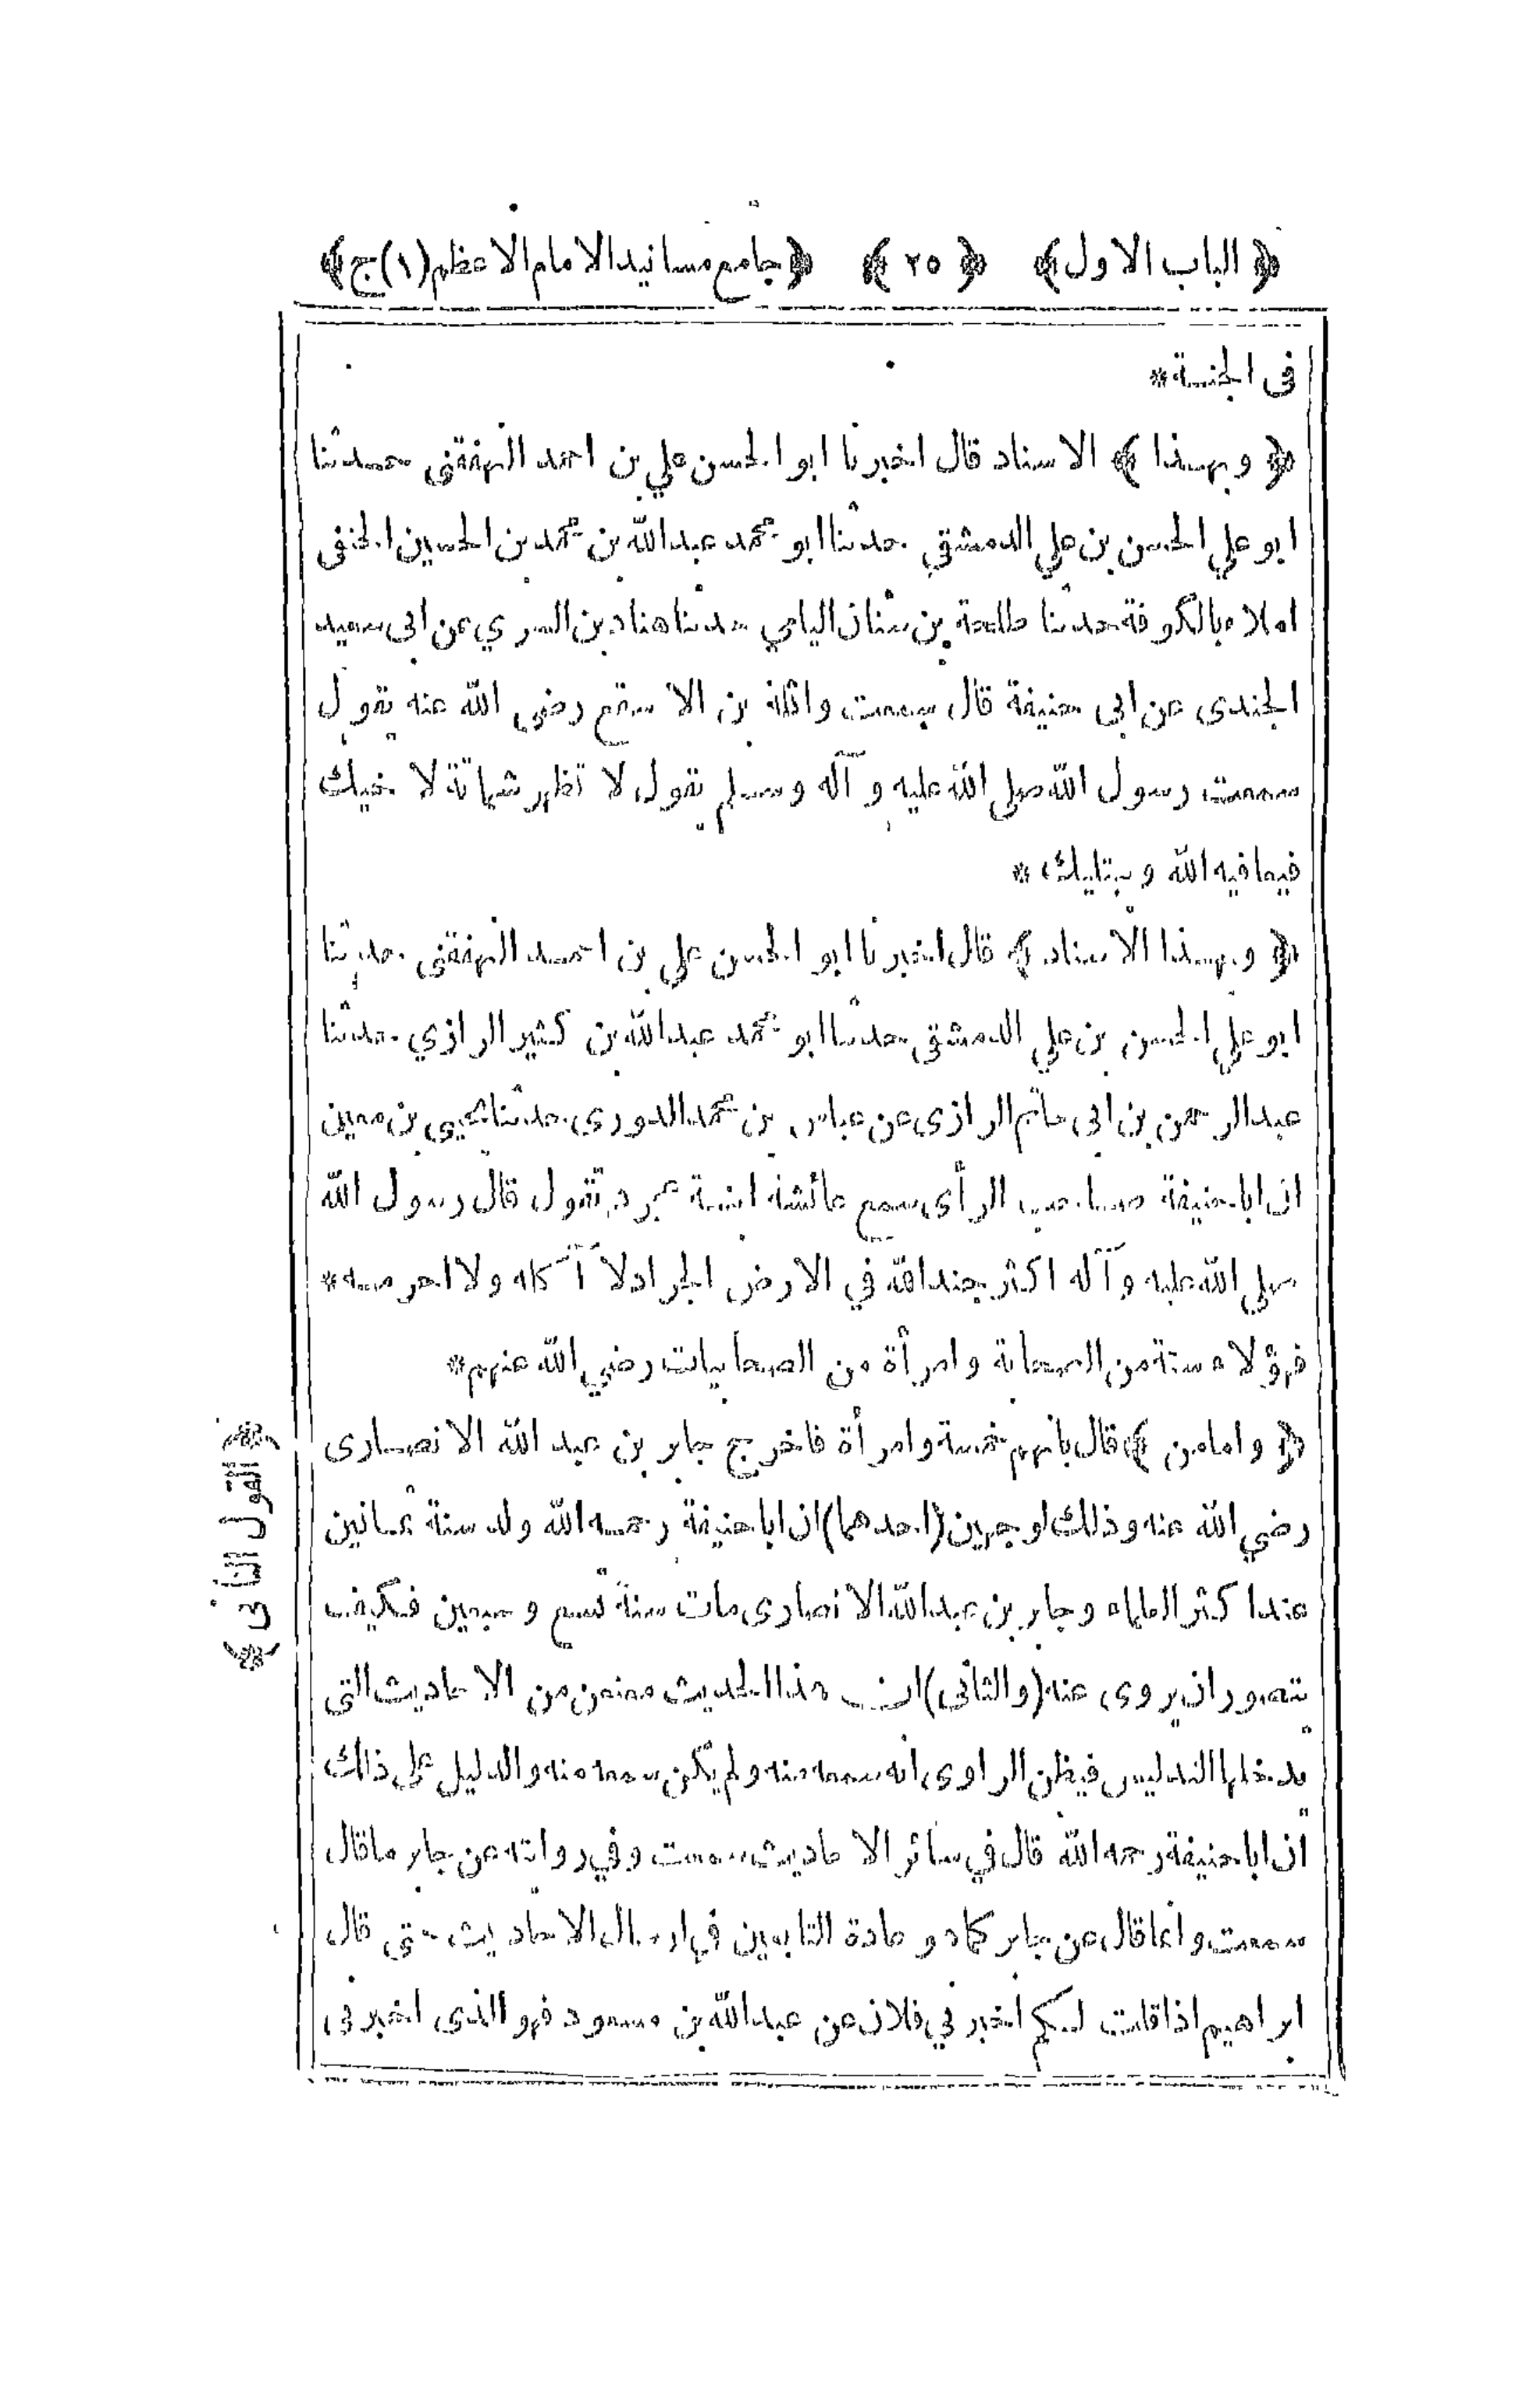 ﴿ الباب الاول ﴾ ﴿ ٢٥ ﴾ ﴿ جامع مسانيد الامام الاعظم (١) ج ﴾
فى الجنة *
﴿ وبهذا ﴾ الاسناد قال اخبرنا ابو الحسن علي بن احمد النهفقنى حدثنا
ابو علي الحسن بن علي الدمشقي حدثنا ابو محمد عبد الله بن محمد بن الحسين الحنفى
املاء بالكوفة حدثنا طلحة بن سنان اليامي حدثنا هناد بن السري عن ابى سعيد
الجندى عن ابى حنيفة قال سمعت واثلة بن الاسقع رضى الله عنه يقول
سمعت رسول الله صلى الله عليه وآله وسلم يقول لا تظهر شماتة لاخيك
فيعافيه الله ويبتليك *
﴿ وبهذا الاسناد ﴾ قال اخبرنا ابو الحسن علي بن احمد النهفقنى حدثنا
ابو علي الحسن بن علي الدمشقى حدثنا ابو محمد عبد الله بن كثير الرازي حدثنا
عبد الرحمن بن ابى حاتم الرازى عن عباس بن محمد الدورى حدثنا يحيى بن معين
ان ابا حنيفة صاحب الرأى سمع عائشة ابنة عجرد تقول قال رسول الله
صلى الله عليه وآله اكثر جند الله في الارض الجراد لا آكله ولا احرمه *
فهؤلاء ستة من الصحابة وامرأة من الصحابيات رضي الله عنهم *
﴿ واما من ﴾ قال بانهم خمسة وامرأة فاخرج جابر بن عبد الله الانصارى
رضي الله عنه وذلك لوجهين (احدهما) ان ابا حنيفة رحمه الله ولد سنة ثمانين
عند اكثر العلماء وجابر بن عبد الله الانصارى مات سنة تسع وسبعين فكيف
يتصور ان يروى عنه (والثانى) ان هذا الحديث معنعن من الاحاديث التى
يدخلها التدليس فيظن الراوى انه سمعه منه ولم يكن سمعه منه والدليل على ذلك
ان ابا حنيفة رحمه الله قال في سائر الاحاديث سمعت وفي روايته عن جابر ما قال
سمعت وانما قال عن جابر كما هو عادة التابعين في ارسال الاحاديث حتى قال
ابراهيم اذا قلت لكم اخبرني فلان عن عبد الله بن مسعود فهو الذى اخبرنى
﴿ القول الثانى ﴾